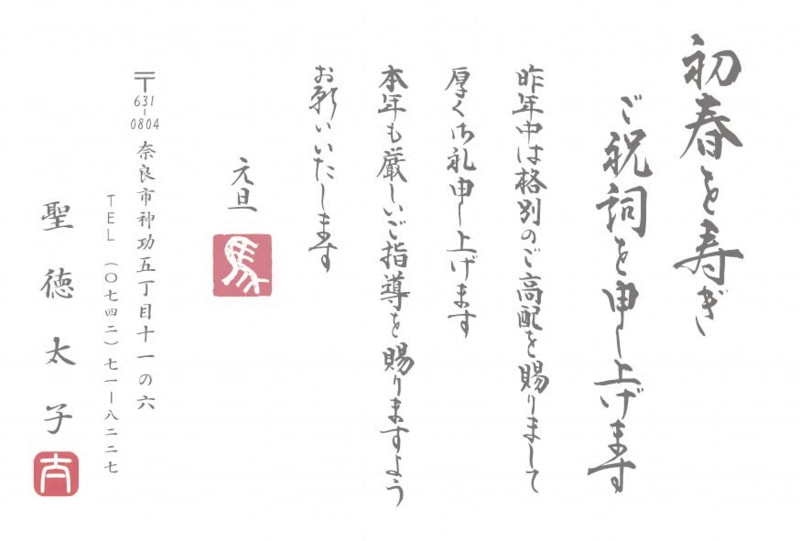 初春を寿ぎ
ご祝詞を申し上げます
昨年中は格別のご高配を賜りまして
厚く御礼申し上げます
本年も厳しいご指導を賜りますよう
お願いいたします
元旦
馬
〒631-0804 奈良市神功五丁目十一の六
TEL (〇七四二)七一ー八二二七
聖徳太子